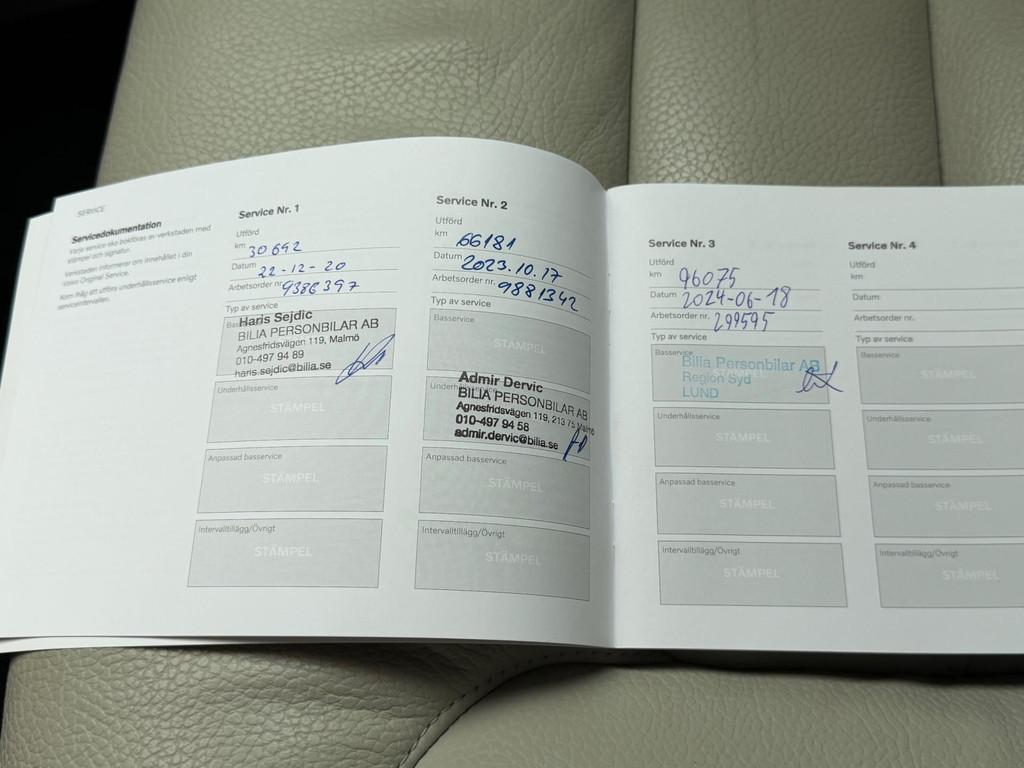 SERVICE
Servicedokumentation
Varje service ska bokföras av verkstaden med
stämpel och signatur.
Verkstaden informerar om innehållet i din
Volvo Original Service.
Kom ihåg att utföra underhållsservice enligt
serviceintervallen.
Service Nr. 1
Utförd
km 30692
Datum 22-12-20
Arbetsorder nr. 9386397
Typ av service
Hans Sejdic
BILIA PERSONBILAR AB
Agnesfridsvägen 119, Malmö
010-497 94 89
haris.sejdic@bilia.se
Underhållsservice
STÄMPEL
Anpassad basservice
STÄMPEL
Intervalltillägg/Övrigt
STÄMPEL
Service Nr. 2
Utförd
km 66181
Datum 2023.10.17
Arbetsorder nr. 9881342
Typ av service
Basservice
STÄMPEL
Admir Dervic
BILIA PERSONBILAR AB
Agnesfridsvägen 119, 213 75 Malmö
010-497 94 58
admir.dervic@bilia.se
Anpassad basservice
STÄMPEL
Intervalltillägg/Övrigt
STÄMPEL
Service Nr. 3
Utförd
km 96075
Datum 2024-06-18
Arbetsorder nr. 299595
Typ av service
Basservice
Bilia Personbilar AB
Region Syd
LUND
Underhållsservice
STÄMPEL
Anpassad basservice
STÄMPEL
Intervalltillägg/Övrigt
STÄMPEL
Service Nr. 4
Utförd
km
Datum
Arbetsorder nr.
Typ av service
Basservice
STÄMPEL
Underhållsservice
STÄMPEL
Anpassad basservice
STÄMPEL
Intervalltillägg/Övrigt
STÄMPEL